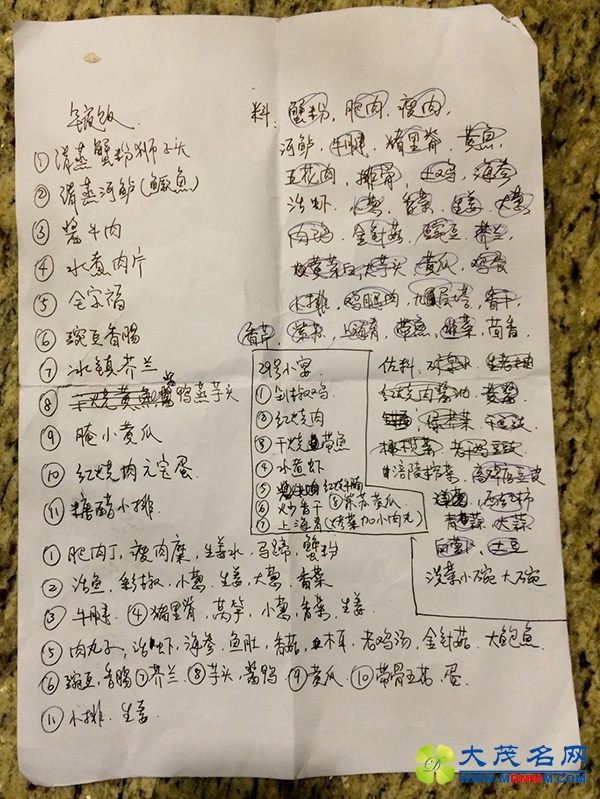 年夜饭
①清蒸蟹粉狮子头
②清蒸河鲈(鳜鱼)
③酱牛肉
④水煮肉片
⑤全家福
⑥豌豆香肠
⑦冰镇芥兰
⑧干烧黄鱼 酱鸭蒸芋头
⑨腌小黄瓜
⑩红烧肉元宝蛋
⑪糖醋小排
料:蟹粉,肥肉,瘦肉,
河鲈,牛腱,猪里脊,黄鱼,
五花肉,排骨,土鸡,海参
活虾,小葱,香菜,生姜,大葱
金针菇,豌豆,芥兰,
大芋头,黄瓜,鸡蛋
小排,鸡腿肉,九层塔,香干,
香草,紫苏,上海青,带鱼,韭菜,茴香
29号小宴
①剁椒鸡
②红烧肉
③干烧带鱼
④水煮虾
⑤红烧牛腩
⑥炒香干 ⑧紫苏黄瓜
⑦上海青(加小肉丸)
佐料,
红烧肉酱油,黄酱
橄榄菜,老干妈豆豉
涪陵榨菜,
西红柿
青蒜,大蒜
土豆
洗菜小碗大碗
①肥肉丁,瘦肉糜,生姜水,马蹄,蟹粉
②活鱼,彩椒,小葱,生姜,大葱,香菜
③牛腱,④猪里脊,莴笋,小葱,香菜,生姜
⑤肉丸子,活虾,海参,鱼肚,香菇,木耳,老鸡汤,金针菇,大鲍鱼
⑥豌豆,香肠⑦芥兰⑧芋头,酱鸭⑨黄瓜⑩带骨五花,蛋
⑪小排,生姜
大茂名网
WWW.MDMMM.COM